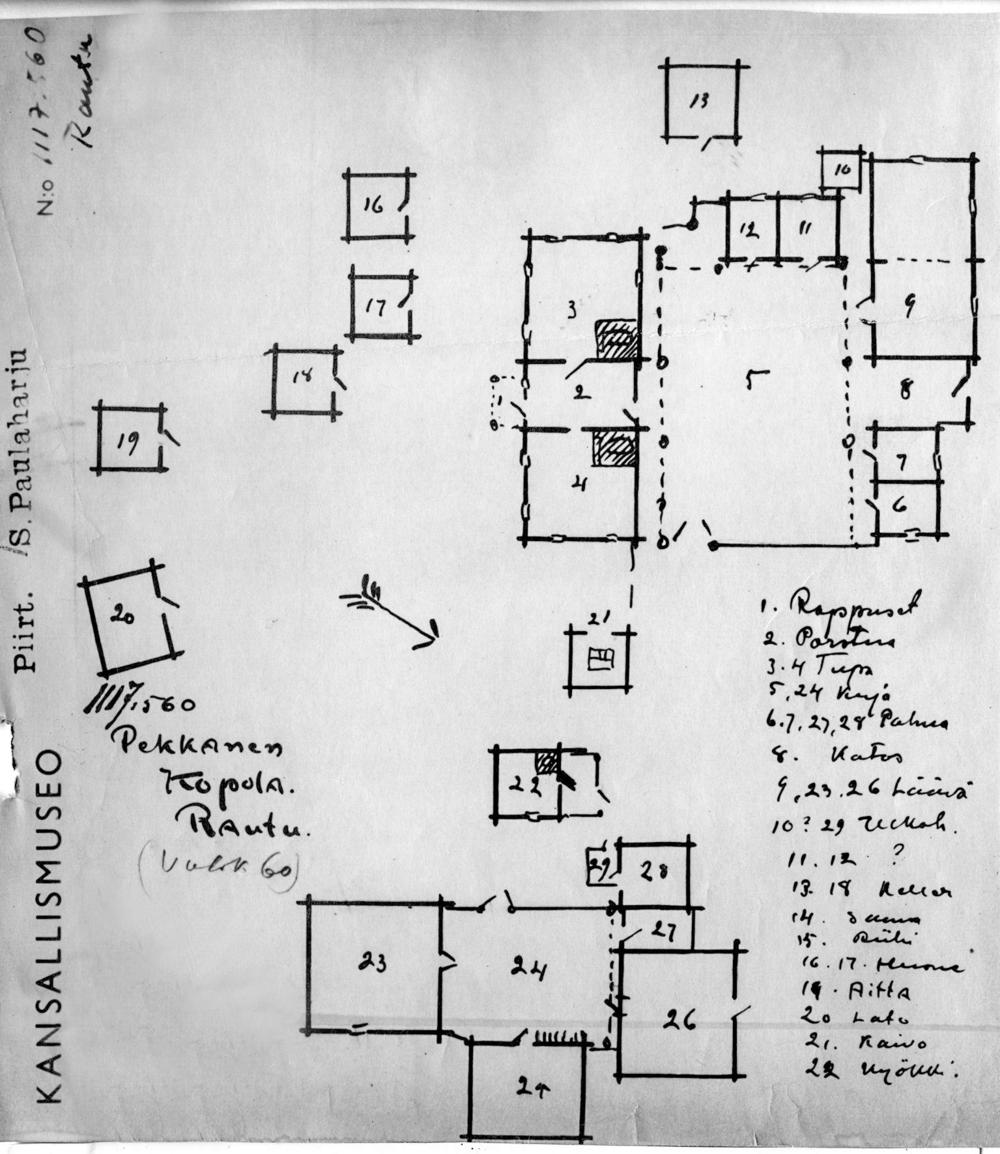 N:o 1117:560
Rautu
Piirt. S. Paulaharju
KANSALLISMUSEO
13
10
16
12
11
17
3
9
18
2
5
8
1
19
7
4
6
20
21
1117:560
Pekkanen
Kopola.
Rautu.
22
29
28
27
23
24
26
24
1. Rappuset
2. Porstua
3.4 Tupa
5,24 Kujа
6.7,27,28 Pahna
8. Katos
9,23.26 Läävä
10? 29
11.12 ?
13. 18 Keller
14. Sauna
15. Riihi
16.17. Huone
19. Aitta
20 Lato
21. Kaivo
22 Kyökki.